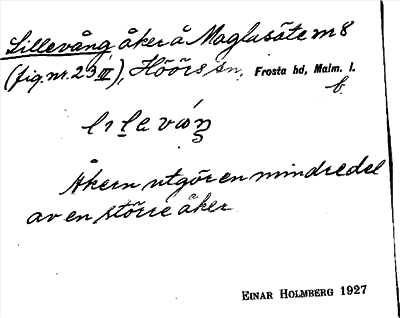 Lillevång åker å Maglasäte m 8
(fig. nr. 23 III), Höörs sn, Frosta hd, Malm. l.
b.
lıleváŋ
Åkern utgör en mindre del
av en större åker
EINAR HOLMBERG 1927